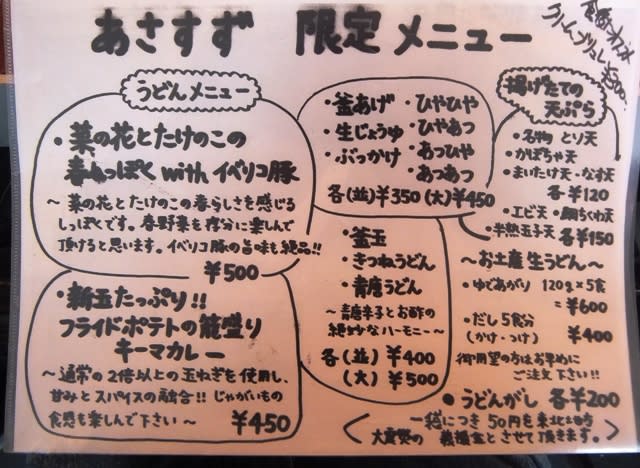 あさすず 限定メニュー
クリームブリュレ ¥300
うどんメニュー
・菜の花とたけのこの
春しっぽく with イベリコ豚
〜菜の花とたけのこの春らしさを感じる
しっぽくです。春野菜を存分に楽しんで
頂けると思います。イベリコ豚の旨味も絶品!!
¥500
・新玉たっぷり!!
フライドポテトの籠盛り
キーマカレー
〜通常の2倍以上の玉ねぎを使用し、
甘みとスパイスの融合!! じゃがいもの
食感も楽しんで下さい〜 ¥450
・釜あげ ・ひやひや
・生じょうゆ ・ひやあつ
・ぶっかけ ・あつひや
・あつあつ
各(並)¥350 (大)¥450
・釜玉
・きつねうどん
・青唐うどん
〜青唐辛子とお酢の
絶妙なハーモニー〜
各(並)¥400
(大)¥500
揚げたての
天ぷら
・名物 とり天
・かぼちゃ天
・まいたけ天・なす天
各¥120
・エビ天 ・ちくわ天
・半熟玉子天 各¥150
〜お土産生うどん〜
・ゆであがり 120g×5食
=¥600
・だし5食分 ¥400
(かけ・つけ)
御用望の方はお早めに
ご注文下さい!!
●うどんがし 各¥200
一袋につき50円を東北地方
大震災の義援金とさせて頂きます。